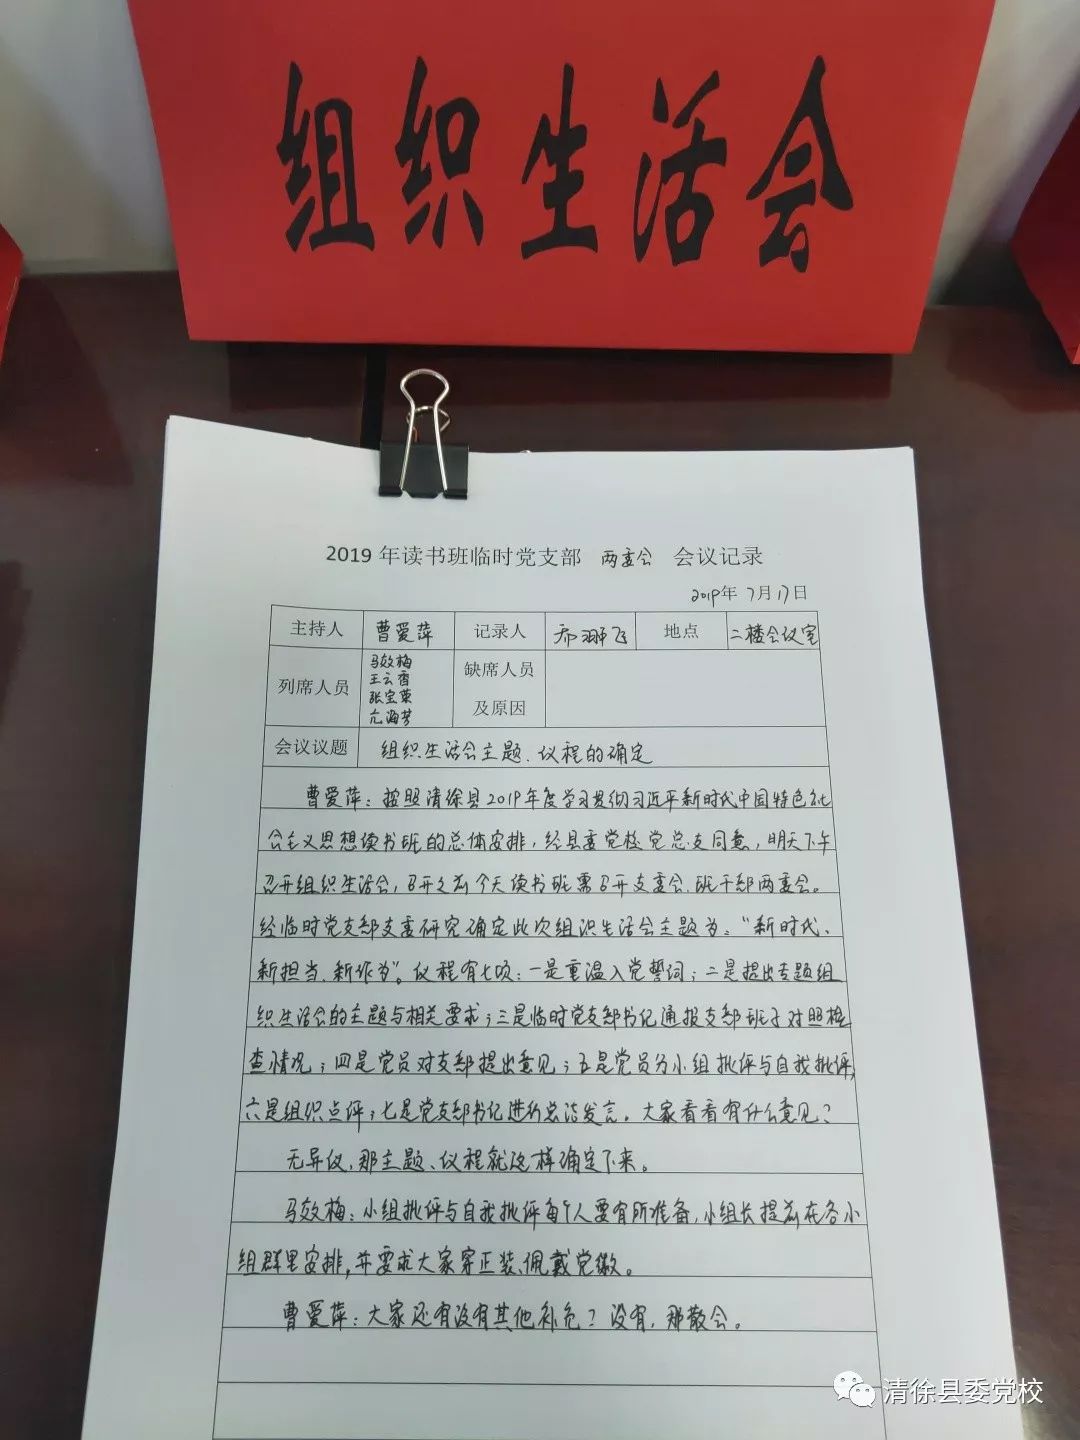 组织生活会
2019年读书班临时党支部 两委会 会议记录
2019年7月17日
主持人 曹爱萍 记录人 乔翀飞 地点 二楼会议室
列席人员 马效梅 王云香 张宝荣 亢海芳 缺席人员及原因
会议议题 组织生活会主题、议程的确定
曹爱萍：按照清徐县2019年度学习贯彻习近平新时代中国特色社
会主义思想读书班的总体安排，经县委党校党总支同意，明天下午
召开组织生活会，召开之前今天读书班需召开支委会、班干部两委会。
经临时党支部支委研究确定此次组织生活会主题为：“新时代、
新担当、新作为”。议程有七项：一是重温入党誓词；二是提出专题组
织生活会的主题与相关要求；三是临时党支部书记通报支部班子对照检
查情况；四是党员对支部提出意见；五是党员分小组批评与自我批评，
六是组织点评；七是党支部书记进行总结发言。大家看看有什么意见？
无异议，那主题、议程就这样确定下来。
马效梅：小组批评与自我批评每个人要有所准备，小组长提前在各小
组群里安排，并要求大家穿正装、佩戴党徽。
曹爱萍：大家还有没有其他补充？没有，那散会。
清徐县委党校